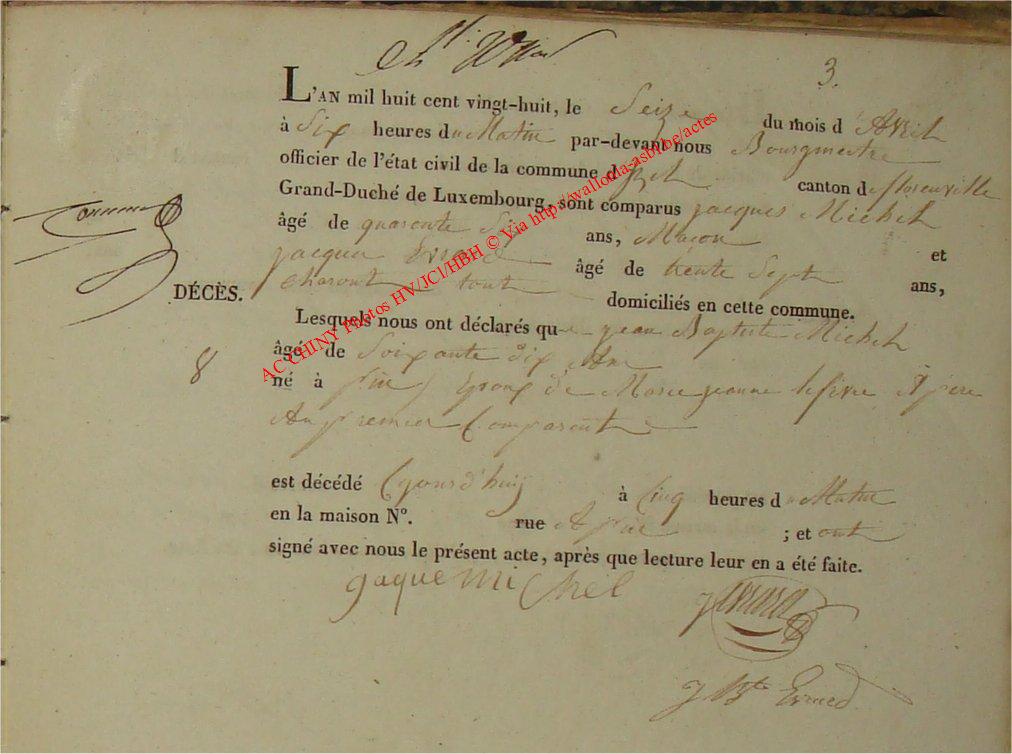 3.
L'AN mil huit cent vingt-huit, le Seize du mois d'Avril
à Six heures du Matin par-devant nous Bourgmestre
officier de l'état civil de la commune d canton de florenville
Grand-Duché de Luxembourg, sont comparus jacques Michel
âgé de quarante Six ans, Maçon et
jacques âgé de trente Sept ans,
tout domiciliés en cette commune.
DÉCÈS.
Lesquels nous ont déclarés que jean Baptiste Michel
8
âgé de Soixante dix Ans
né à Epoux de Marie jeanne lefevre & père
Au premier Comparant
est décédé à Cinq heures du Matin
en la maison N°. rue ; et ont
signé avec nous le présent acte, après que lecture leur en a été faite.
jaque michel
J Bte
AC CHINY Photos HV/JCl/HBH © Via http://wallonia-asbl.be/actes